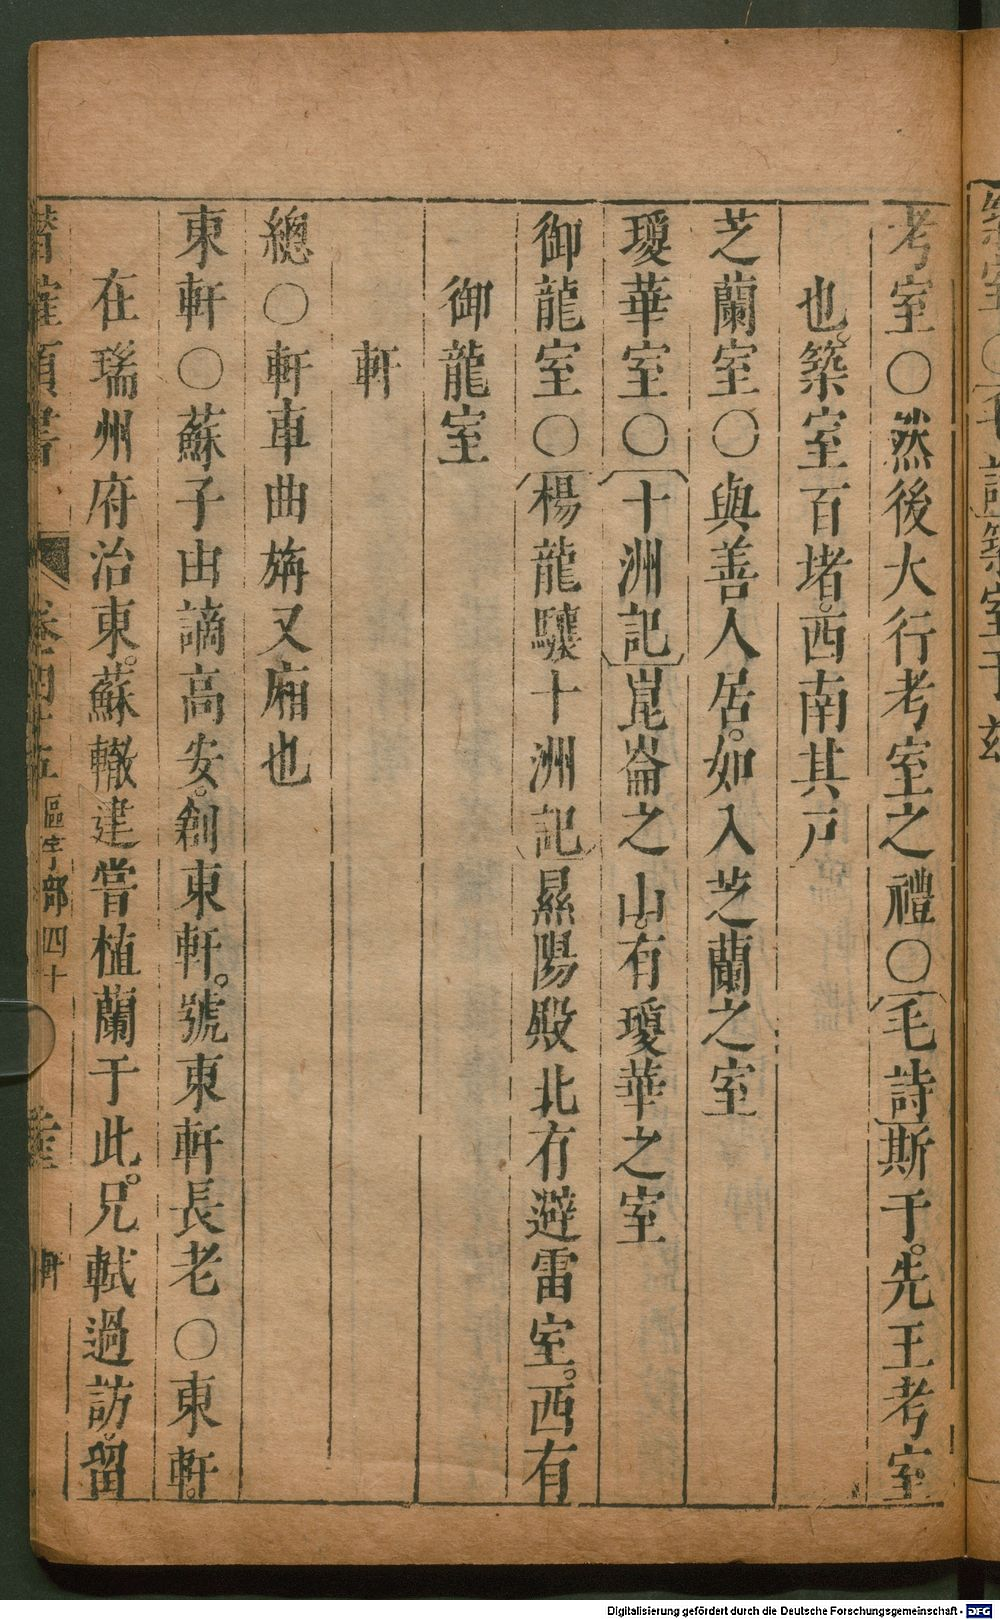 考室○然後大行考室之禮○毛詩斯于。先王考室
也。築室百堵。西南其戶
芝蘭室○與善人居。如入芝蘭之室
瓊華室○十洲記崑崙之山。有瓊華之室
御龍室○楊龍驤十洲記㬎陽殿北有避雷室。西有
御龍室
軒
總○軒車曲輈又廂也
東軒○蘇子由謫高安。創東軒。號東軒長老○東軒。
在瑞州府治東。蘇轍建嘗植蘭于此。兄軾過訪。留
潛確類書 卷四十五 區宇部四十 室 軒
Digitalisierung gefördert durch die Deutsche Forschungsgemeinschaft - DFG